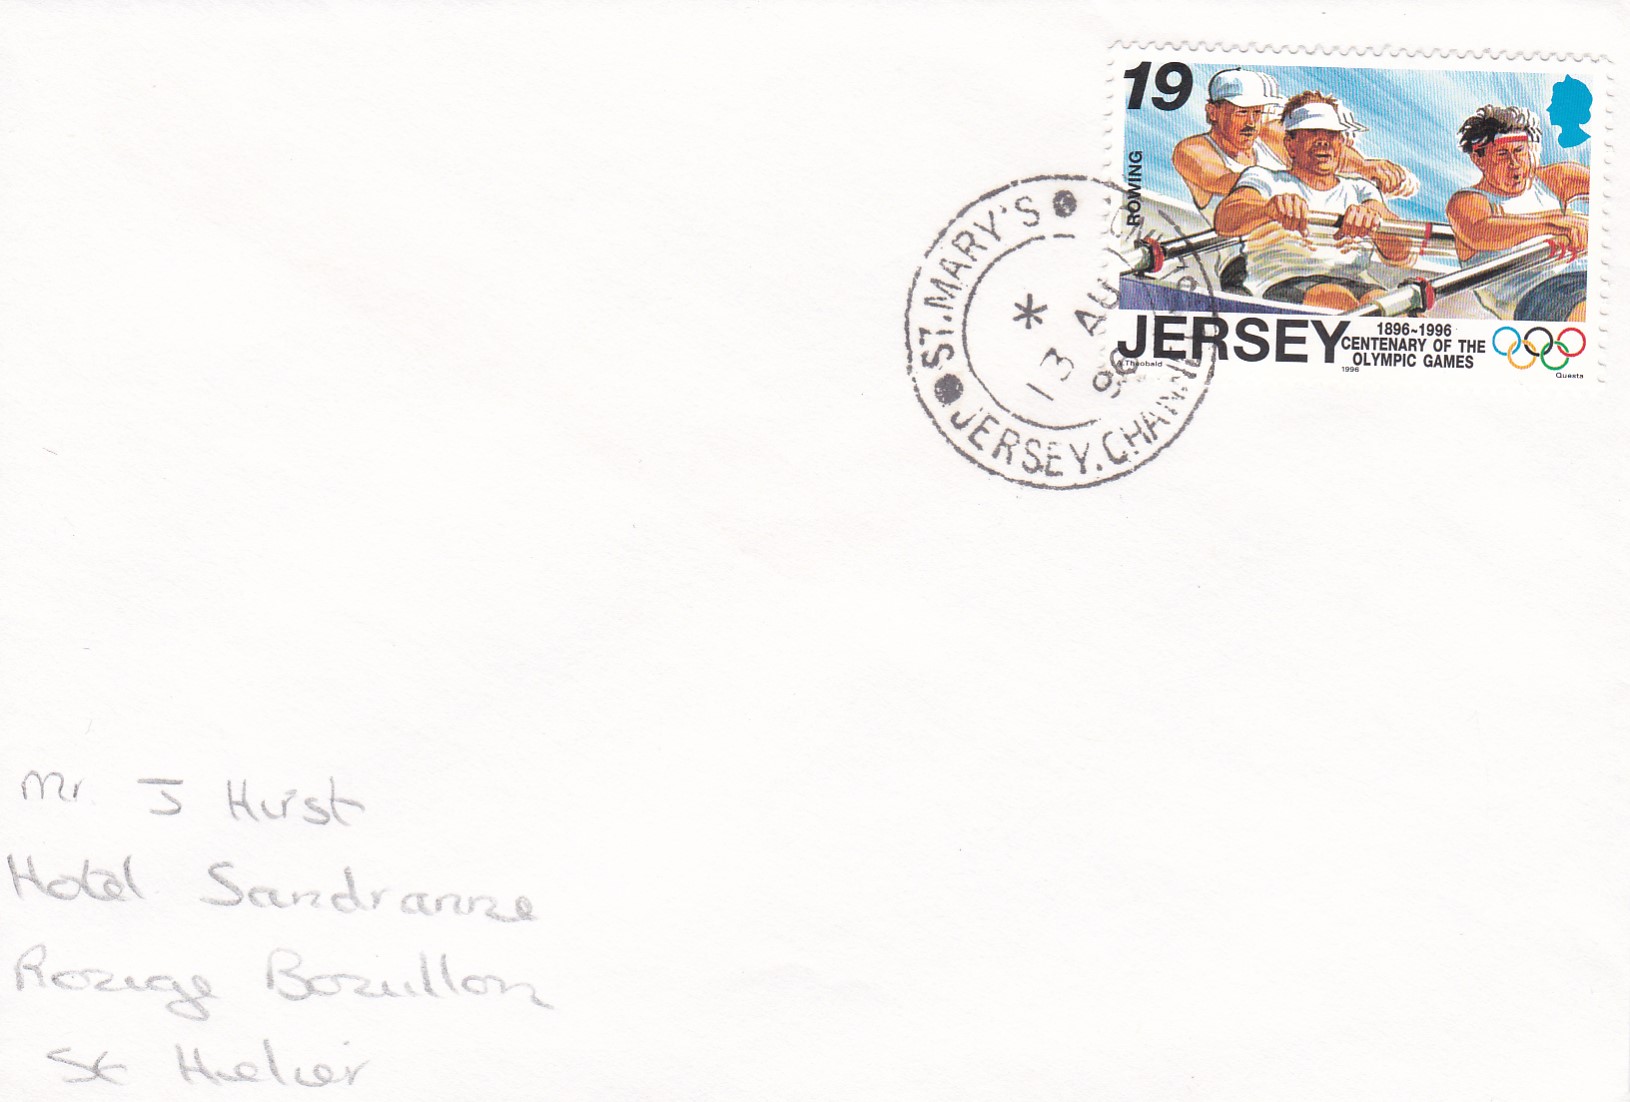 19
ROWING
JERSEY
1896~1996
CENTENARY OF THE
OLYMPIC GAMES
Theobald
1996
Questa
ST. MARY'S
JERSEY. CHANNEL
*
13 AU
96
Mr J Hirst
Hotel Sandranne
Rouge Bouillon
St Helier